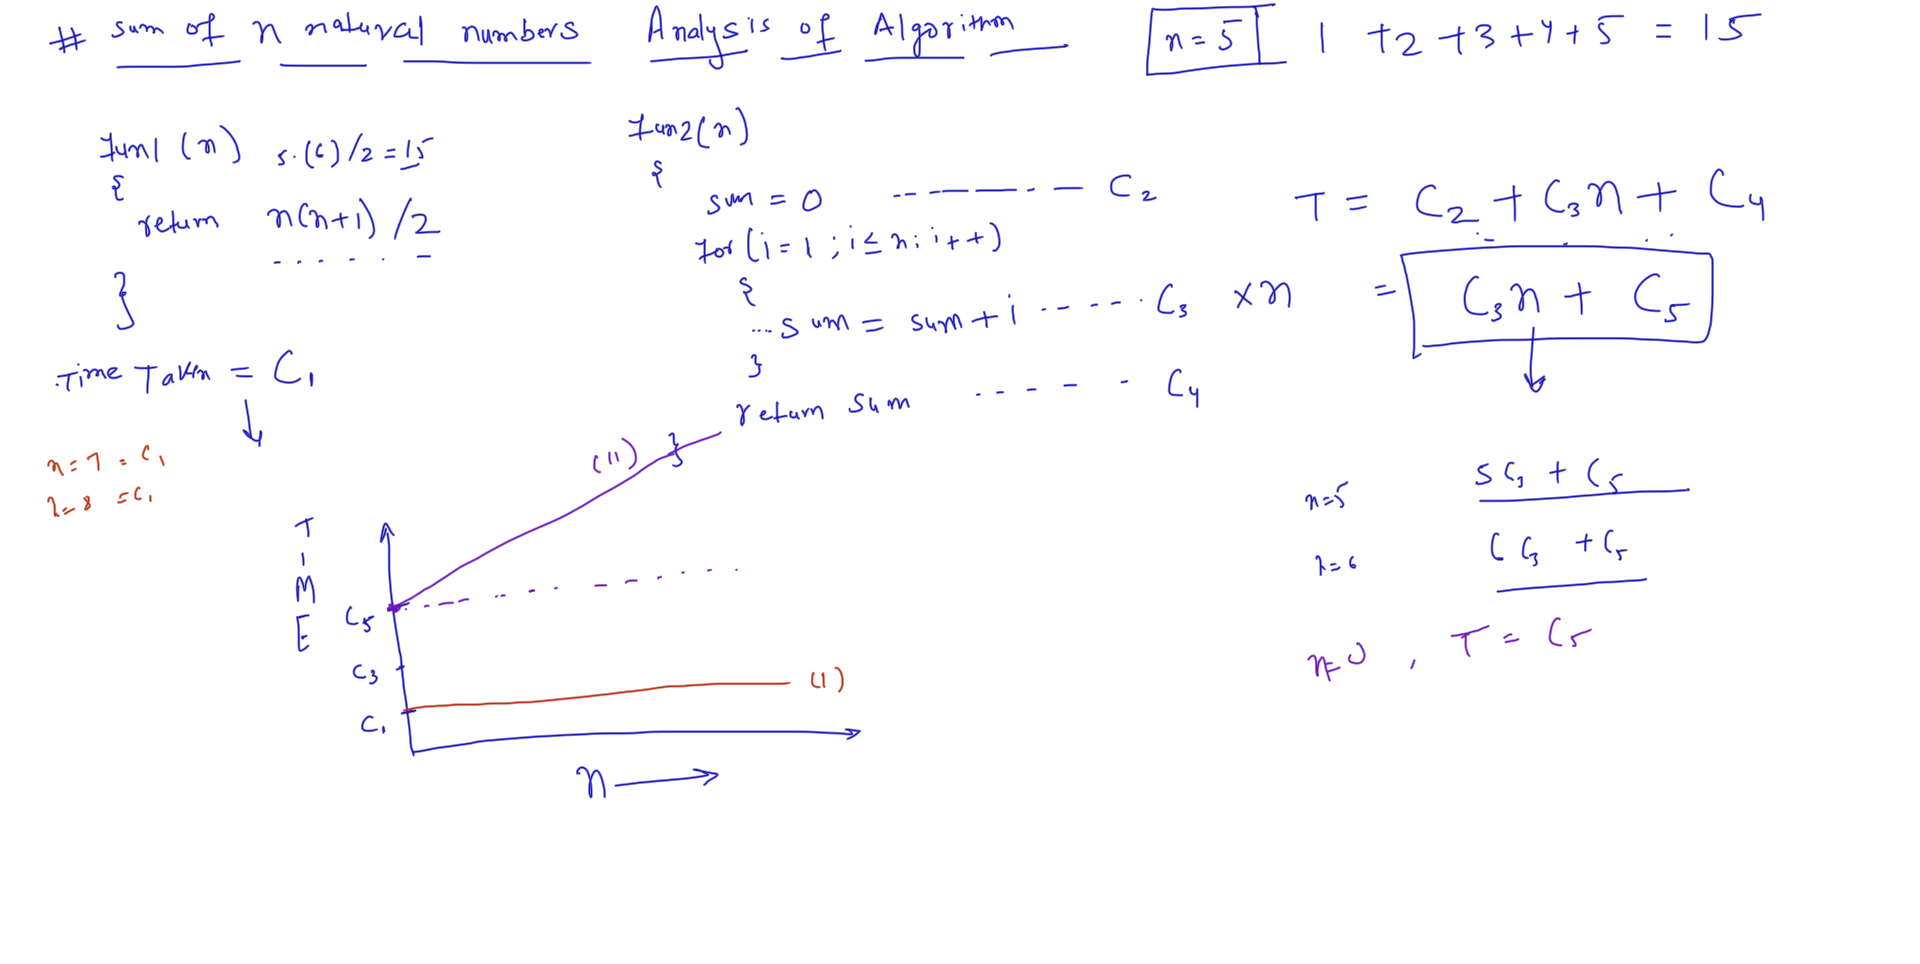 # sum of n natural numbers Analysis of Algorithm n = 5 1 + 2 + 3 + 4 + 5 = 15
fun1 (n) 5.(6)/2 = 15
{
return n(n+1)/2
}
Time Taken = C1
n = 7 = C1
n = 8 = C1
fun2(n)
{
sum = 0 C2
for (i = 1 ; i ≤ n ; i++)
{
sum = sum + i C3 × n
}
return sum C4
}
T = C2 + C3n + C4
= C3n + C5
n = 5 5C3 + C5
n = 6 6C3 + C5
n = 0 , T = C5
TIME
C5
C3
C1
(11)
(1)
n